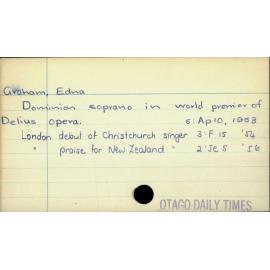 Graham, Edna
Dominion soprano in world premier of
Delius opera. 6: Ap 10, 1953
London debut of Christchurch singer 3: F 15 '54
" praise for New Zealand " 2: Je 5 '56
OTAGO DAILY TIMES